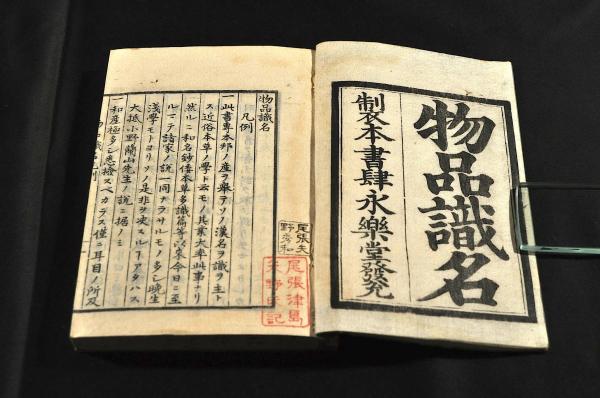 物品識名
製本書肆永樂堂發兌
物品識名
凡例
一此書専本邦ノ産ヲ擧テソノ漢名ヲ識ヲ主ト
ス近俗本草ノ學ト云モノ其業大率此事ナリ
然ルニ和名鈔倭本草多識篇等以來今日ニ至
ルマテ諸家ノ説一同ナラサルモノ多シ晩生
浅學モトヨリソノ是非ヲ決スルヿアタハス
大抵小野蘭山先生ノ説ニ據ノミ
一和産極多シ悉擧スベカラス僅ニ耳目ノ所及
尾張天
尾張津島
天野氏記